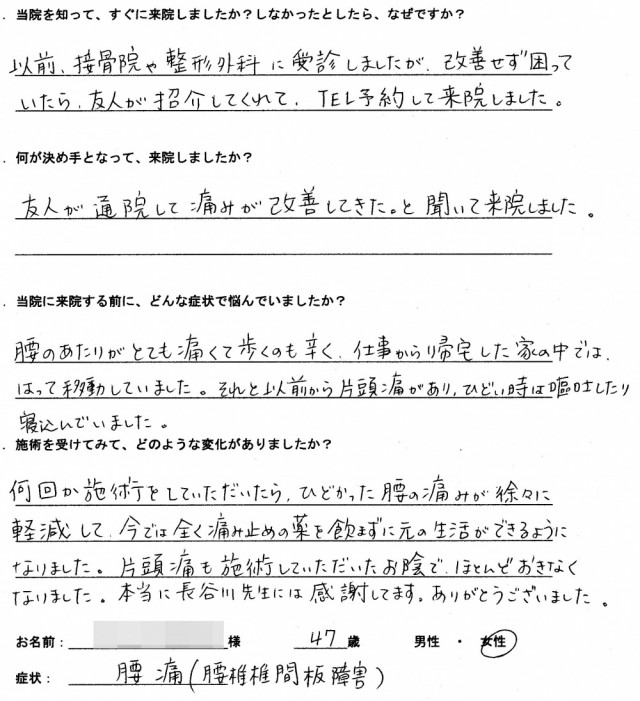 . 当院を知って、すぐに来院しましたか？しなかったとしたら、なぜですか？
以前、接骨院や整形外科に受診しましたが、改善せず困って
いたら、友人が招介してくれて、TEL予約して来院しました。
. 何が決め手となって、来院しましたか？
友人が通院して痛みが改善してきた。と聞いて来院しました。
. 当院に来院する前に、どんな症状で悩んでいましたか？
腰のあたりがとても痛くて歩くのも辛く、仕事から帰宅した家の中では、
はって移動していました。それと以前から片頭痛があり、ひどい時は嘔吐したり
寝込んでいました。
. 施術を受けてみて、どのような変化がありましたか？
何回か施術をしていただいたら、ひどかった腰の痛みが徐々に
軽減して、今では全く痛み止めの薬を飲まずに元の生活ができるように
なりました。片頭痛も施術していただいたお陰で、ほとんどおきなく
なりました。本当に長谷川先生には感謝してます。ありがとうございました。
お名前： 様 47歳 男性 ・ 女性
症状： 腰痛（腰椎椎間板障害）